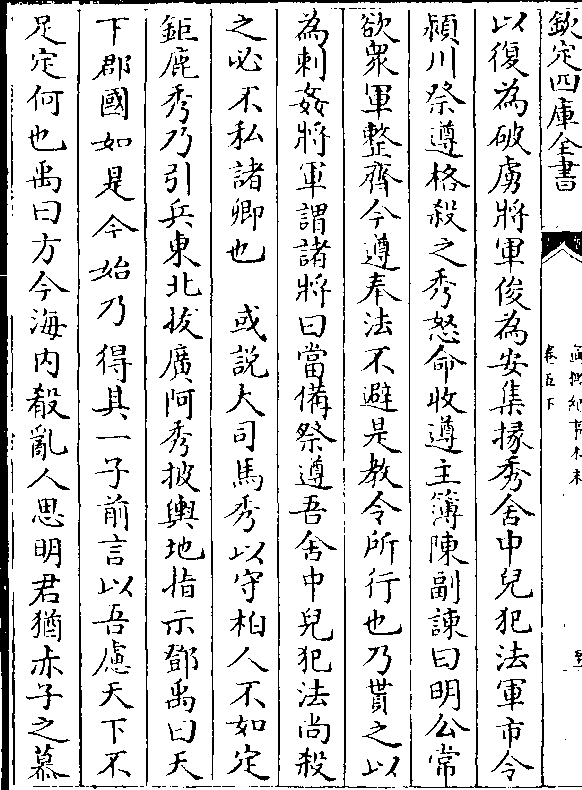 欽定四庫全書
卷五下
以復為破虜將軍俊為安集掾秀舍中兒犯法軍市令
潁川祭遵格殺之秀怒命收遵主簿陳副諫曰明公常
欲衆軍整齊今遵奉法不避是教令所行也乃貰之以
為刺姦將軍謂諸將曰當備祭遵吾舍中兒犯法尚殺
之必不私諸卿也　或說大司馬秀以守柏人不如定
鉅鹿秀乃引兵東北拔廣阿秀披輿地指示鄧禹曰天
下郡國如是今始乃得其一子前言以吾慮天下不
足定何也禹曰方今海内殽亂人思明君猶赤子之慕